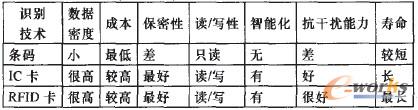 识别技术 数据密度 成本 保密性 读/写性 智能化 抗干扰能力 寿命
条码 小 最低 差 只读 无 差 较短
IC 卡 很高 较高 最好 读/写 有 好 长
RFID 卡 很高 较高 最好 读/写 有 很好 最长
e-works